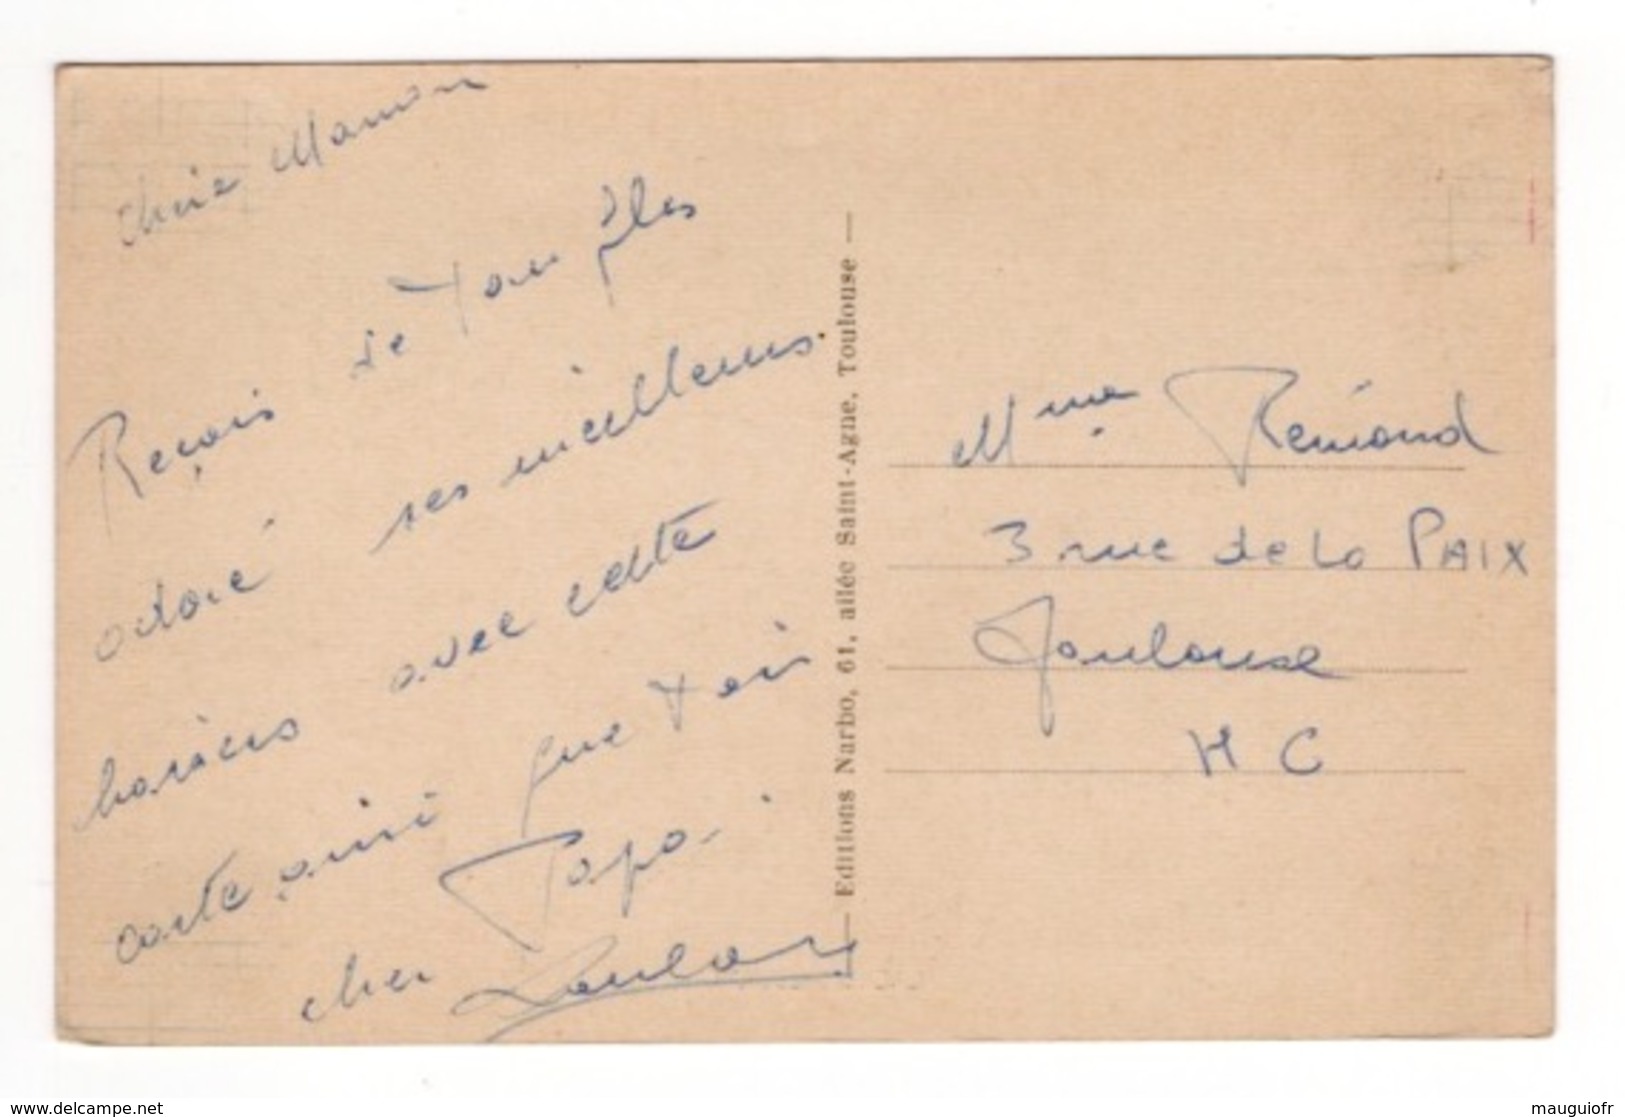 cherie Maman
Reçois de ton fils
adoré ses meilleurs
baisers avec cette
carte ainsi que toi
cher Papa.
Loulou
— Editions Narbo, 61, allée Saint-Agne, Toulouse —
Mme Remond
3 rue de La PAIX
Toulouse
H C
www.delcampe.net
mauguiofr